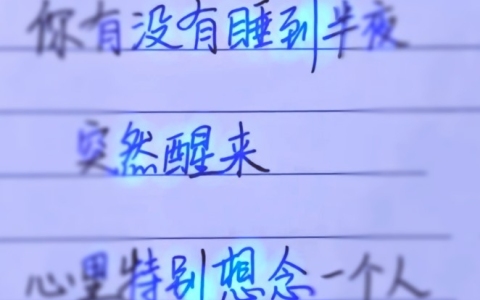 你有没有睡到半夜
突然醒来
心里特别想念一个人